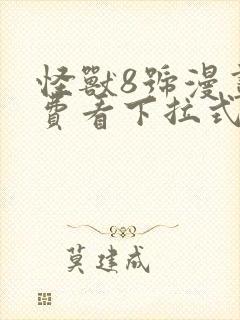 怪獸8號漫
費看下拉式
莫建成